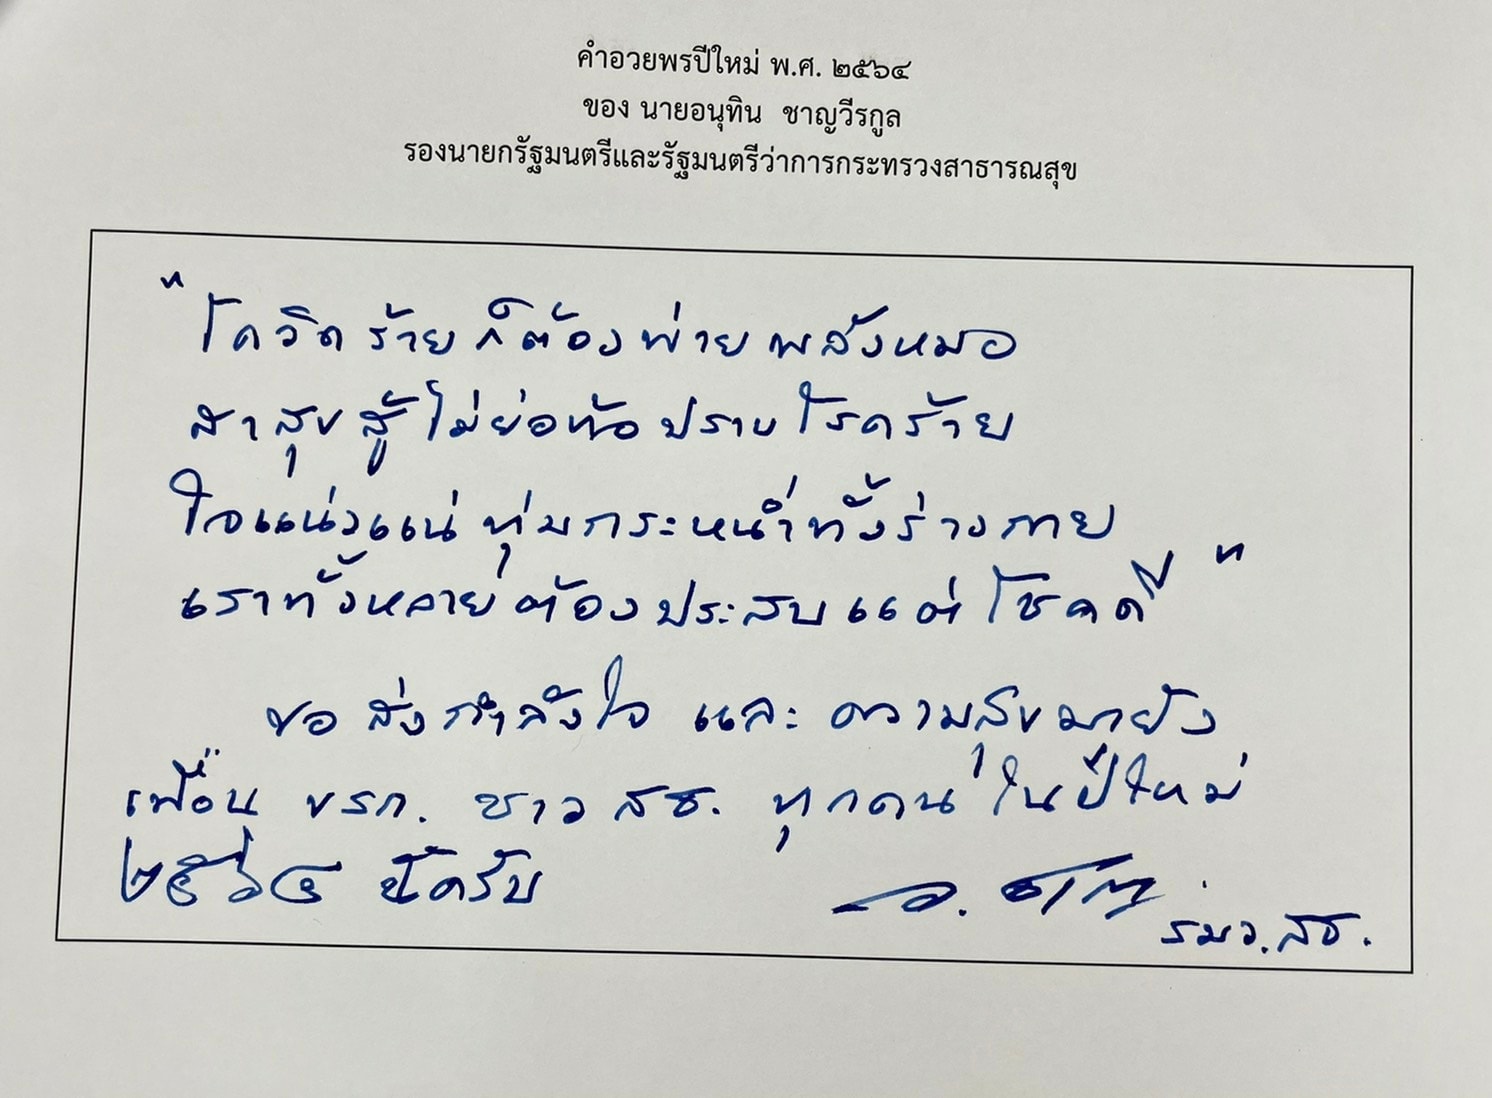 คำอวยพรปีใหม่ พ.ศ. ๒๕๖๔
ของ นายอนุทิน ชาญวีรกูล
รองนายกรัฐมนตรีและรัฐมนตรีว่าการกระทรวงสาธารณสุข
"โควิดร้ายก็ต้องพ่ายพลังหมอ
สาสุขสู้ไม่ย่อท้อปราบโรคร้าย
ใจแน่วแน่ทุ่มกระหน่ำทั้งร่างกาย
เราทั้งหลายต้องประสบแต่โชคดี"
ขอส่งกำลังใจ และ ความสุขมายัง
เพื่อน ขรก. ชาว สธ. ทุกคน ในปีใหม่
๒๕๖๔ นี้ครับ
อ. ชาญ
รมว.สธ.